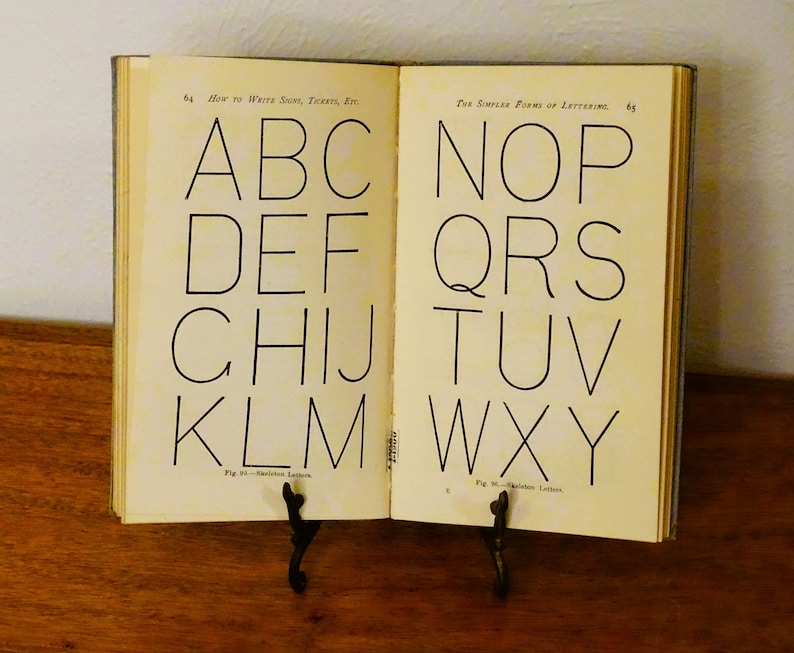 64 How to Write Signs, Tickets, Etc.
ABC
DEF
GHIJ
KLM
Fig. 95.—Skeleton Letters.
The Simpler Forms of Lettering. 65
NOP
QRS
TUV
WXY
Fig. 96.—Skeleton Letters.
E